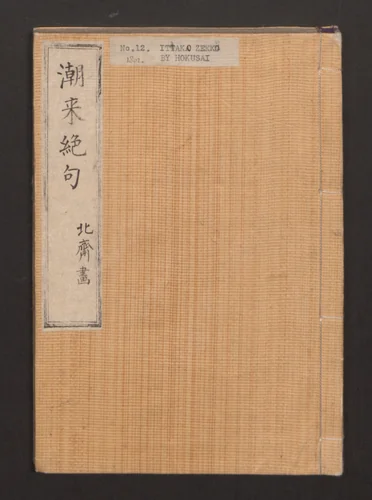 No.12. ITTAKO ZEKKU
BY HOKUSAI
潮来絶句
北齋畫